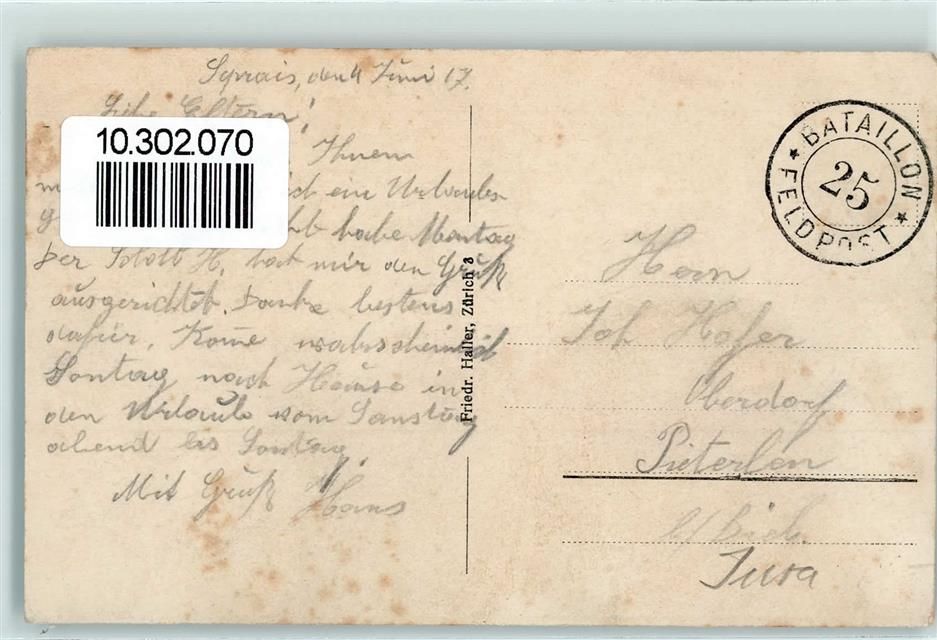 Soprais, den 4 Juni 17.
Liebe Eltern!
10.302.070
Ihnen
ich ein Urlaubs
habe Montag
Der Soldt H. hat mir den Gruß
ausgerichtet. Danke bestens
dafür, Kome wahrscheinlich
Sontag nach Hause in
den Urlaub vom Samstag
abend bis Sontag.
Mit Gruß Hans
Friedr. Haller, Zürich 3
BATAILLON
25
FELDPOST
Herrn
Joh Hofer
Oberdorf
Pieterlen
b/Biel.
Jura